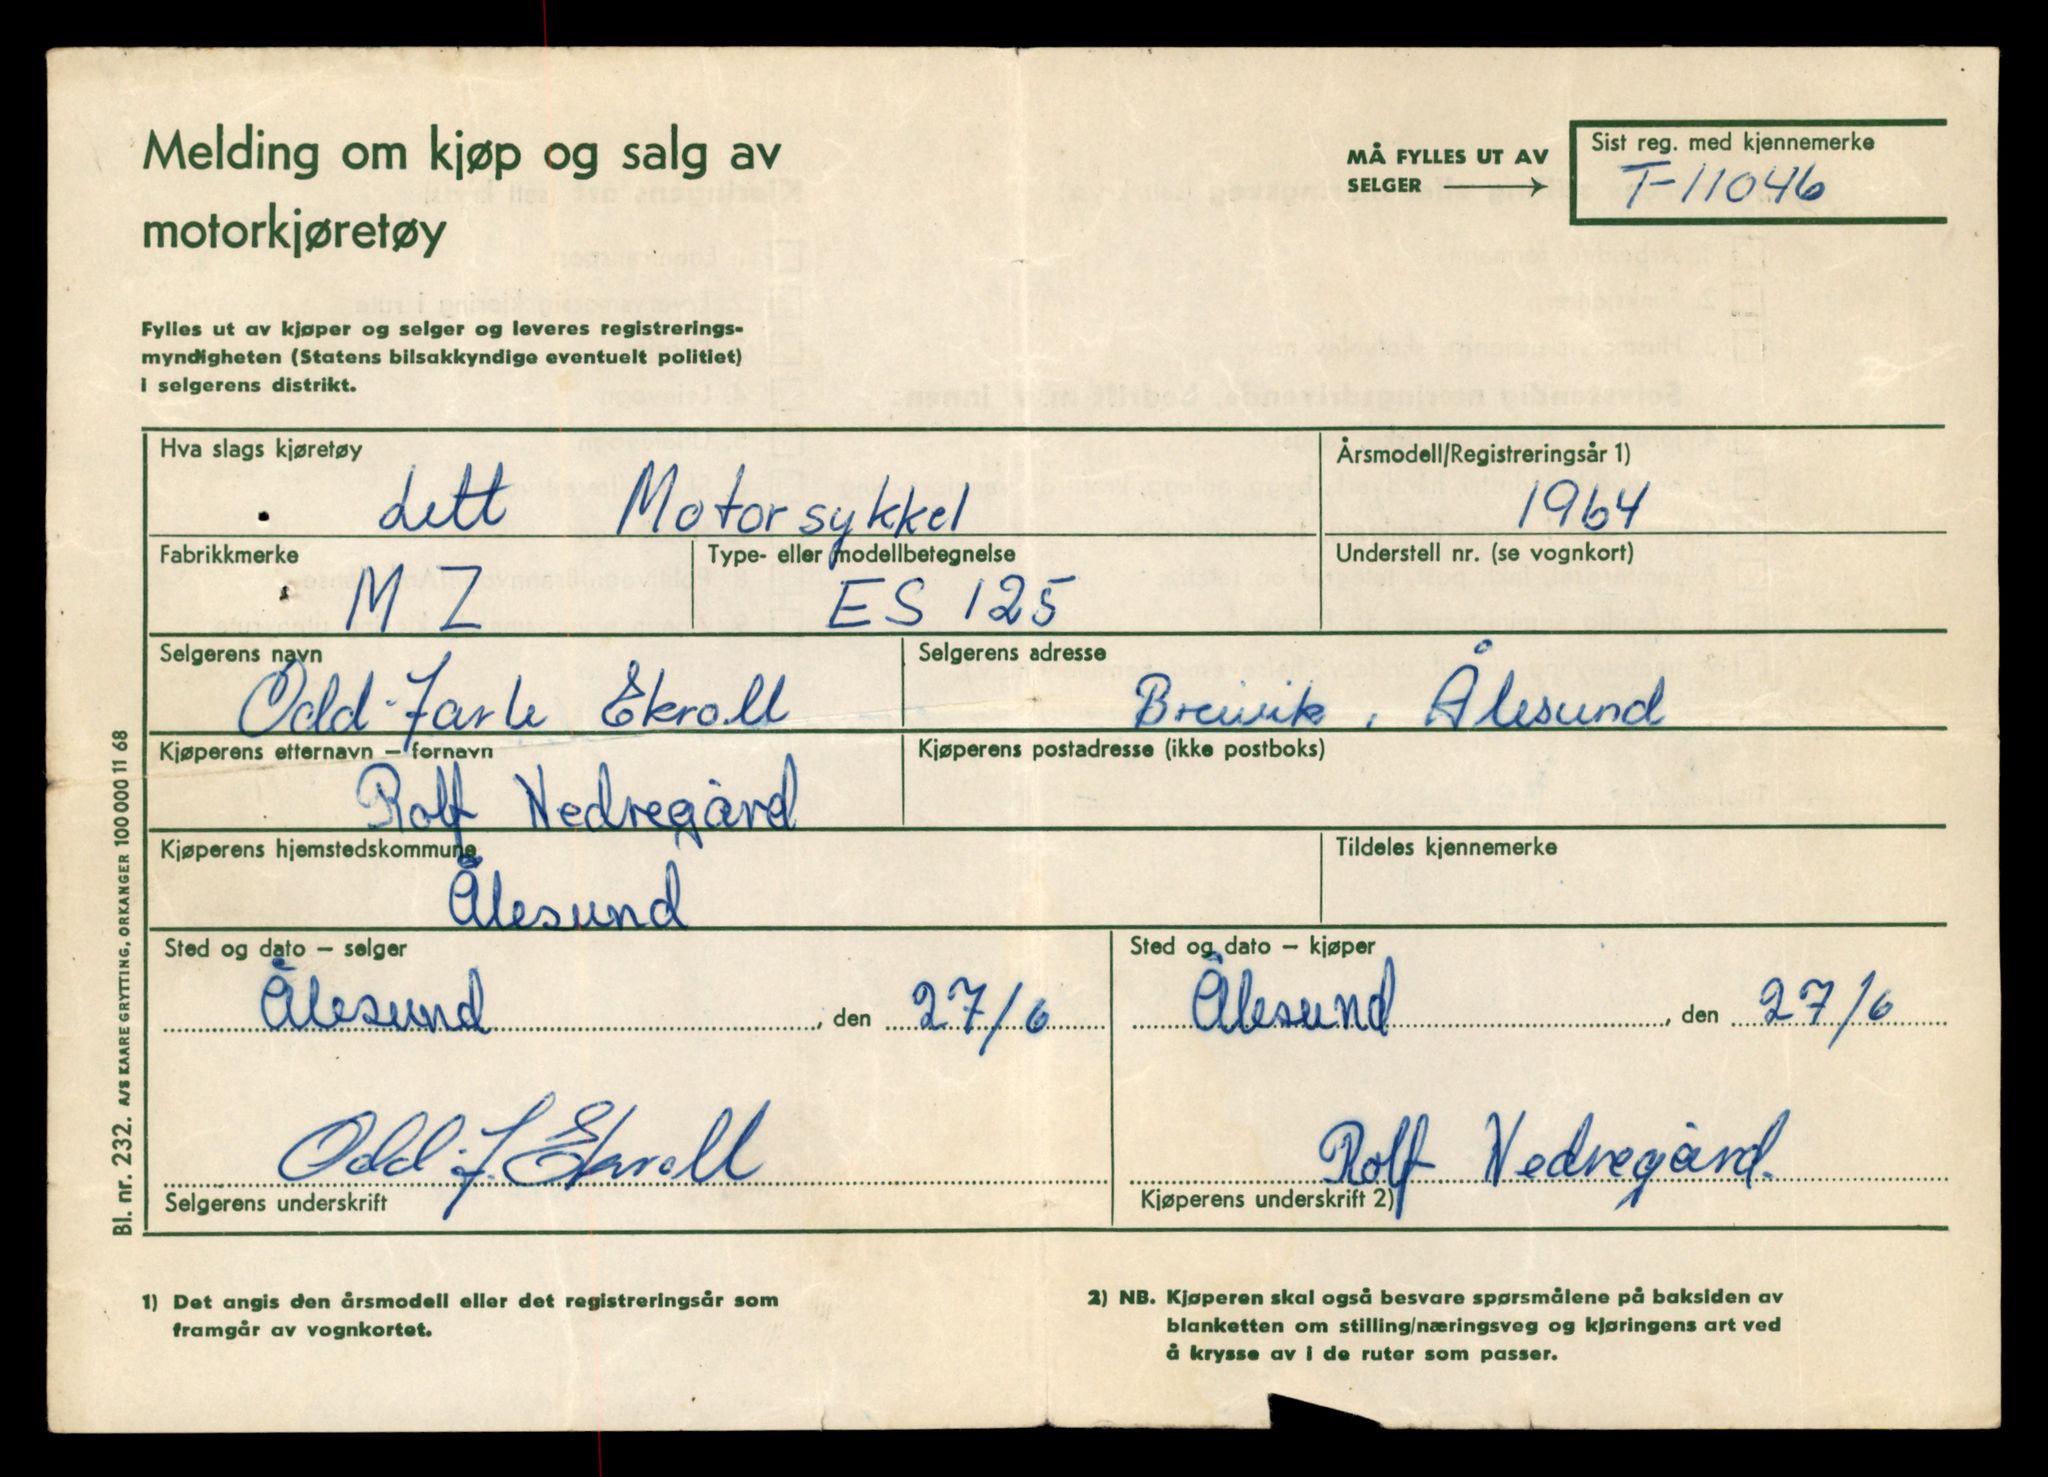 Melding om kjøp og salg av
motorkjøretøy
MÅ FYLLES UT AV
SELGER
Sist reg. med kjennemerke
T-11046
Fylles ut av kjøper og selger og leveres registrerings-
myndigheten (Statens bilsakkyndige eventuelt politiet)
i selgerens distrikt.
Hva slags kjøretøy
Lett Motorsykkel
Årsmodell/Registreringsår 1)
1964
Fabrikkmerke
MZ
Type- eller modellbetegnelse
ES 125
Understell nr. (se vognkort)
Selgerens navn
Odd-Jarle Ekroll
Selgerens adresse
Breivik, Ålesund
Kjøperens etternavn – fornavn
Rolf Nedregård
Kjøperens postadresse (ikke postboks)
Kjøperens hjemstedskommune
Ålesund
Tildeles kjennemerke
Sted og dato – selger
Ålesund, den 27/6
Sted og dato – kjøper
Ålesund, den 27/6
Odd-J. Ekroll
Selgerens underskrift
Rolf Nedregård.
Kjøperens underskrift 2)
Bl. nr. 232. A/S KAARE GRYTTING, ORKANGER 100 000 11 68
1) Det angis den årsmodell eller det registreringsår som
framgår av vognkortet.
2) NB. Kjøperen skal også besvare spørsmålene på baksiden av
blanketten om stilling/næringsveg og kjøringens art ved
å krysse av i de ruter som passer.